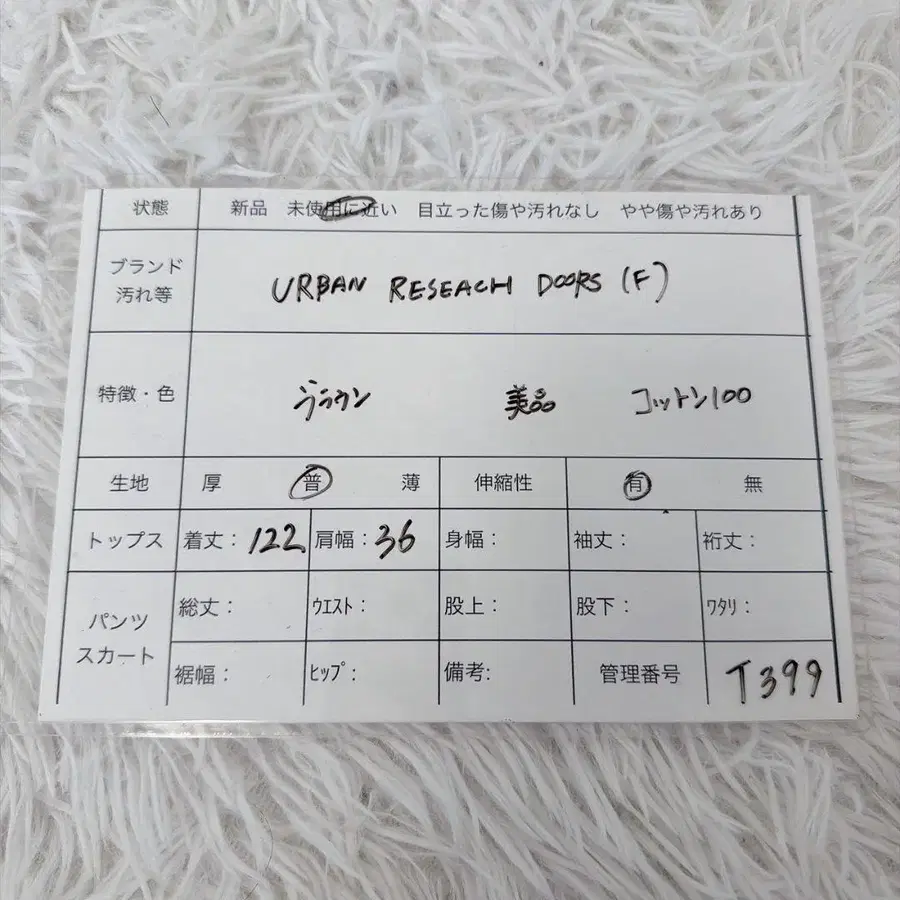 状態 新品 未使用に近い 目立った傷や汚れなし やや傷や汚れあり
ブランド
汚れ等
URBAN RESEACH DOORS (F)
特徴・色 ブラウン 美品 コットン100
生地 厚 普 薄 伸縮性 有 無
トップス 着丈: 122 肩幅: 36 身幅: 袖丈: 裄丈:
パンツ
スカート
総丈: ウエスト: 股上: 股下: ワタリ:
裾幅: ヒップ: 備考: 管理番号 T399